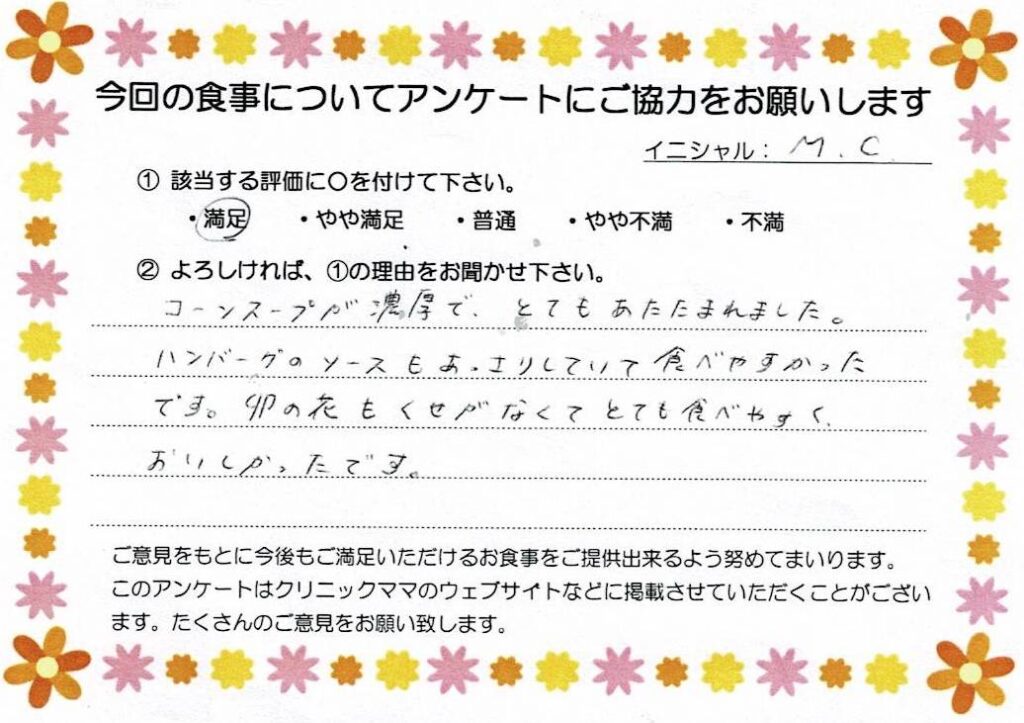 今回の食事についてアンケートにご協力をお願いします
イニシャル： M.C.
① 該当する評価に〇を付けて下さい。
・満足 ・やや満足 ・普通 ・やや不満 ・不満
② よろしければ、①の理由をお聞かせ下さい。
コーンスープが濃厚で、とてもあたたまれました。
ハンバーグのソースもあっさりしていて食べやすかった
です。卯の花もくせがなくてとても食べやすく、
おいしかったです。
ご意見をもとに今後もご満足いただけるお食事をご提供出来るよう努めてまいります。
このアンケートはクリニックママのウェブサイトなどに掲載させていただくことがござい
ます。たくさんのご意見をお願い致します。